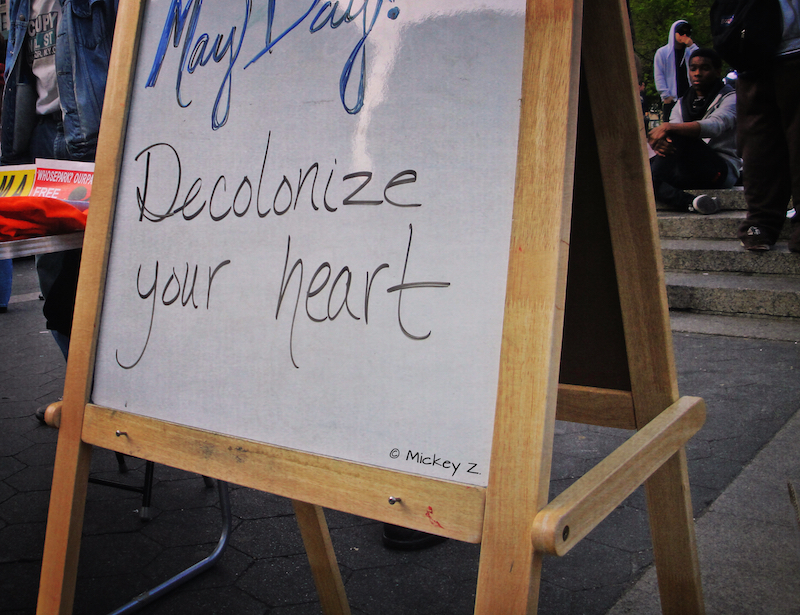 May Day!
Decolonize
your heart
© Mickey Z.
"WHOSEPARK? OURPA
FREE